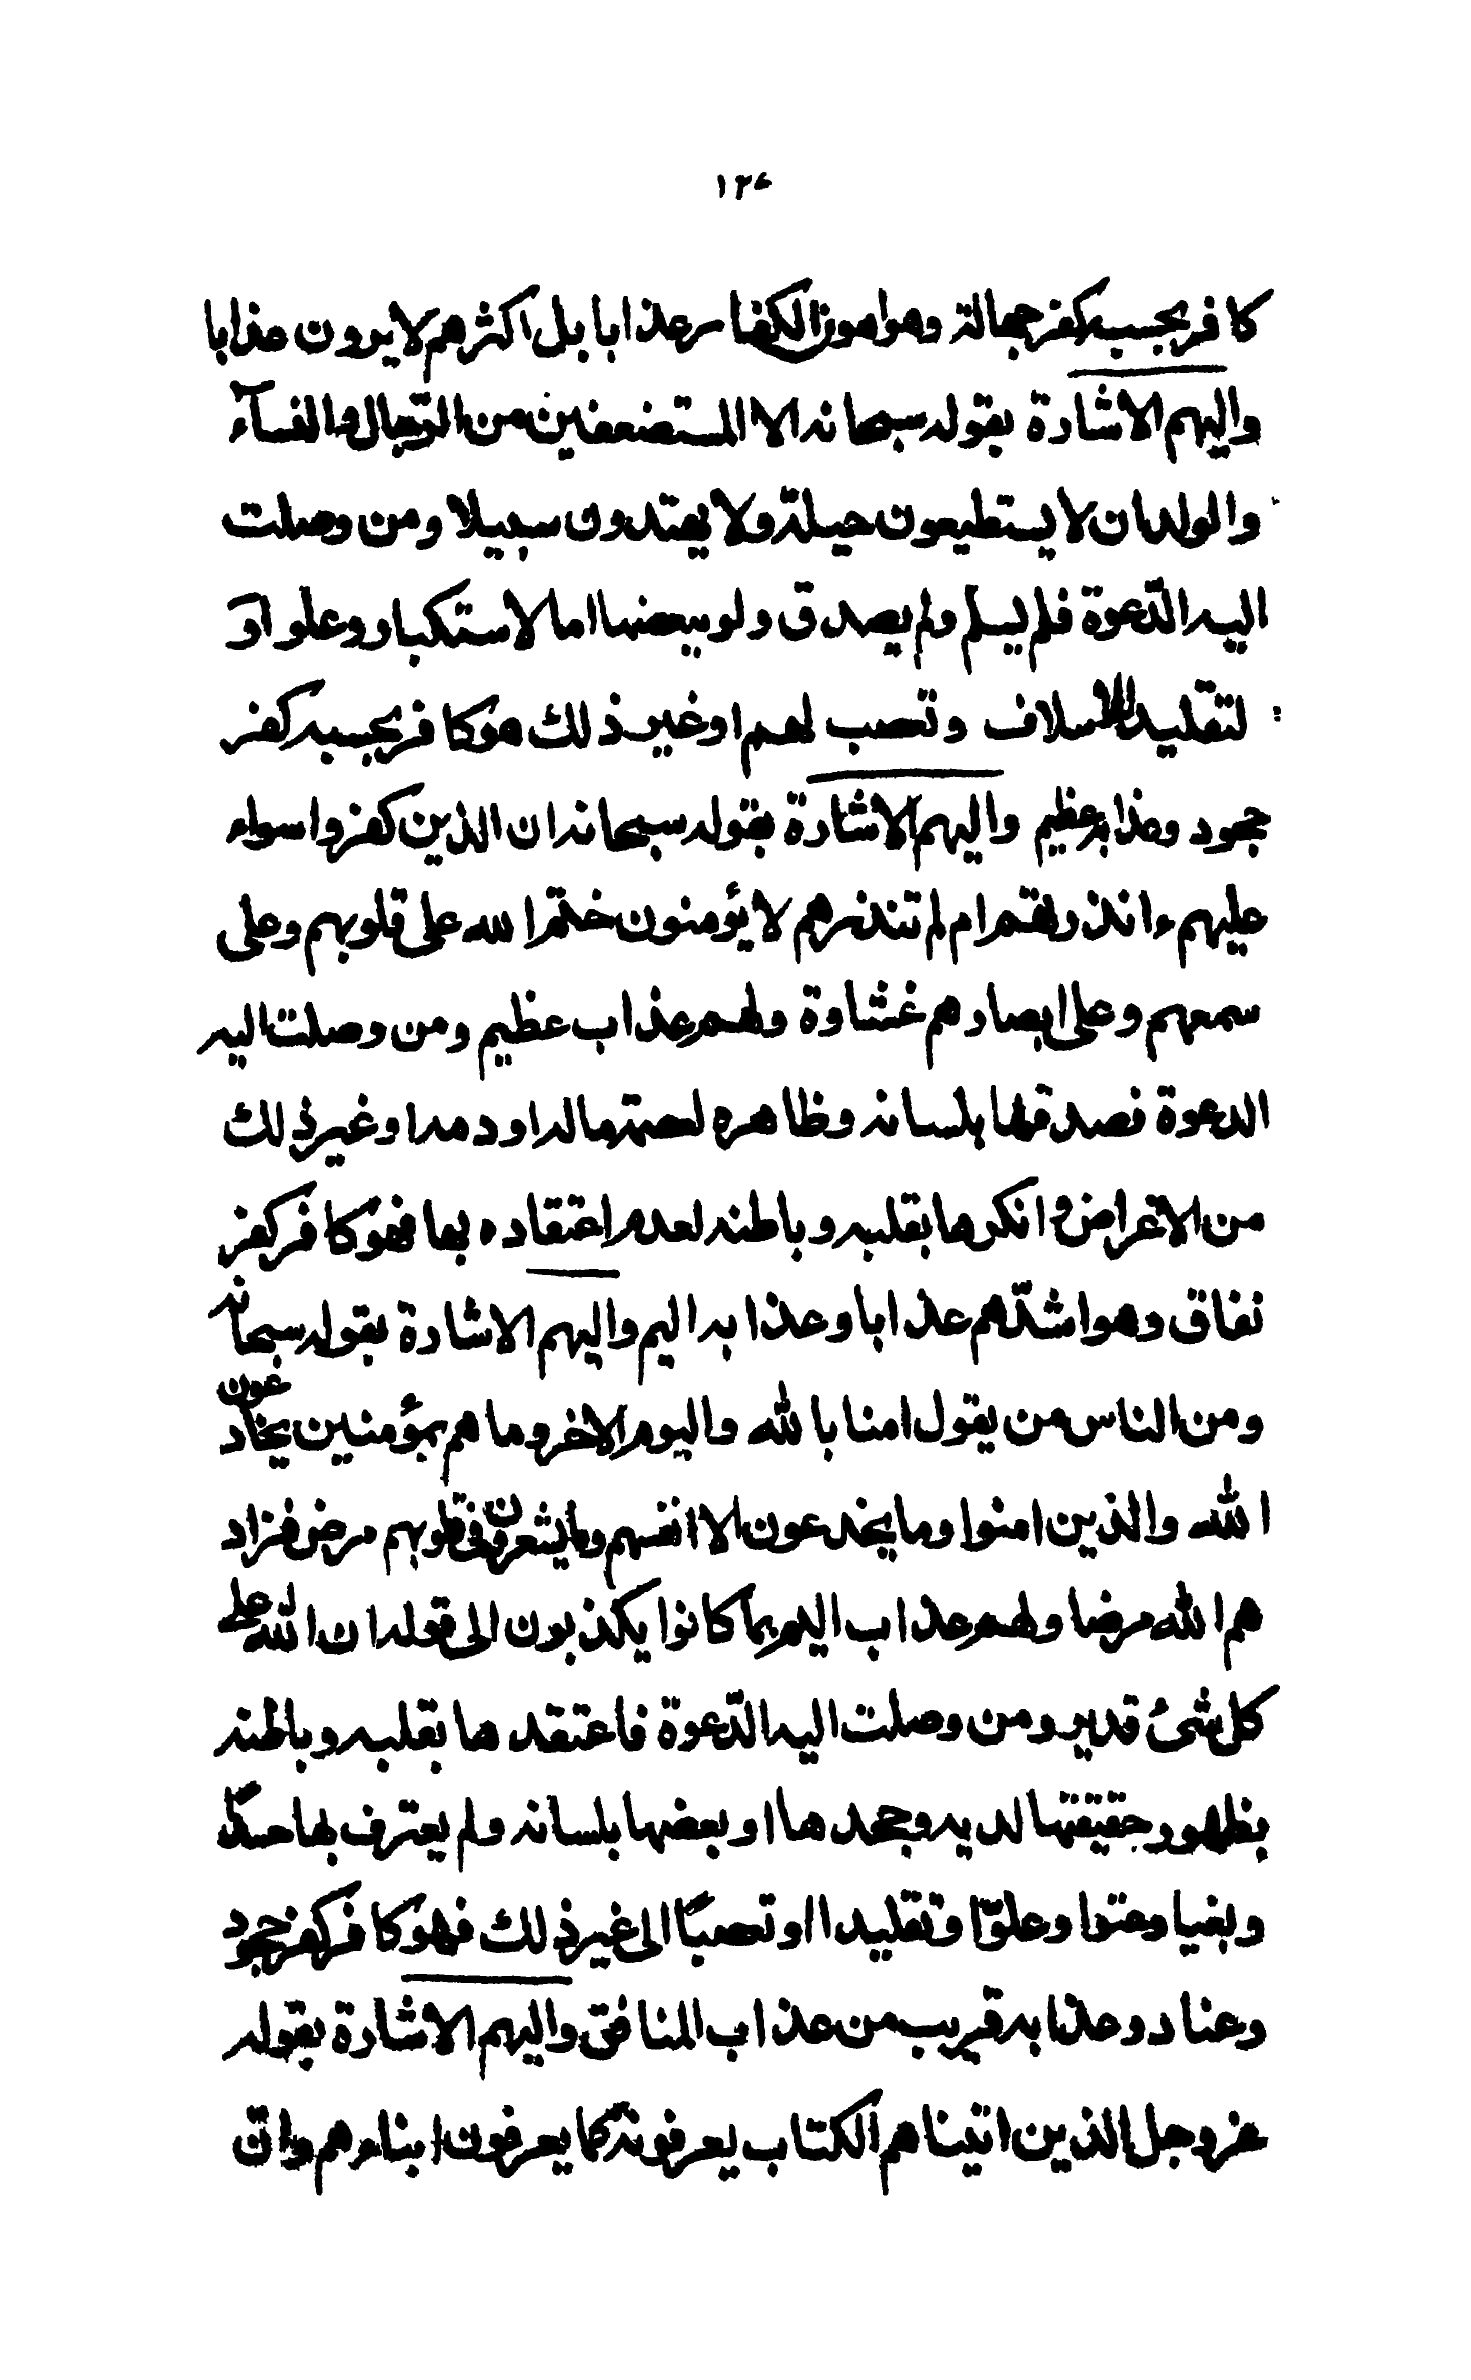 ١٢٤
كافر بحسبه كفر جهالة وهو اهون الكفار عذابا بل اكثرهم لا يرون عذابا
واليهم الاشارة بقوله سبحانه الا المستضعفين من الرّجال والنسآء
والولدان لا يستطيعون حيلة ولا يهتدون سبيلا ومن وصلت
اليه الدّعوة فلم يسلم ولم يصدق ولو ببعضها اما لاستكبار وعلو او
لتقليد الاسلاف وتعصب لهم او غير ذلك هو كافر بحسبه كفر
جحود وعذابه عظيم واليهم الاشارة بقوله سبحانه ان الذين كفروا سواء
عليهم ءانذرتهم ام لم تنذرهم لا يؤمنون ختم الله على قلوبهم وعلى
سمعهم وعلى ابصارهم غشاوة ولهم عذاب عظيم ومن وصلت اليه
الدعوة فصدقها بلسانه وظاهره لعصمة ماله او دمه او غير ذلك
من الاغراض وانكرها بقلبه وباطنه لعدم اعتقاده بها فهو كافر كفر
نفاق وهو اشدّهم عذابا وعذابه اليم واليهم الاشارة بقوله سبحانه
ومن الناس من يقول امنا بالله واليوم الاخر وما هم بمؤمنين يخادعون
الله والذين امنوا وما يخدعون الا انفسهم وما يشعرون في قلوبهم مرض فزاد
هم الله مرضا ولهم عذاب اليم بما كانوا يكذبون الى قوله ان الله على
كل شئ قدير ومن وصلت اليه الدّعوة فاعتقدها بقلبه وباطنه
بظهور حقيقتها لديه وجحدها او بعضها بلسانه ولم يعترف بها حسدًا
وبغيا وعتوا وعلوّا وتقليدا او تعصبًا الى غير ذلك فهو كافر كفر جحود
وعناد وعذابه قريب من عذاب المنافق واليهم الاشارة بقوله
عز وجل الذين اتيناهم الكتاب يعرفونه كما يعرفون ابناءهم وانّ